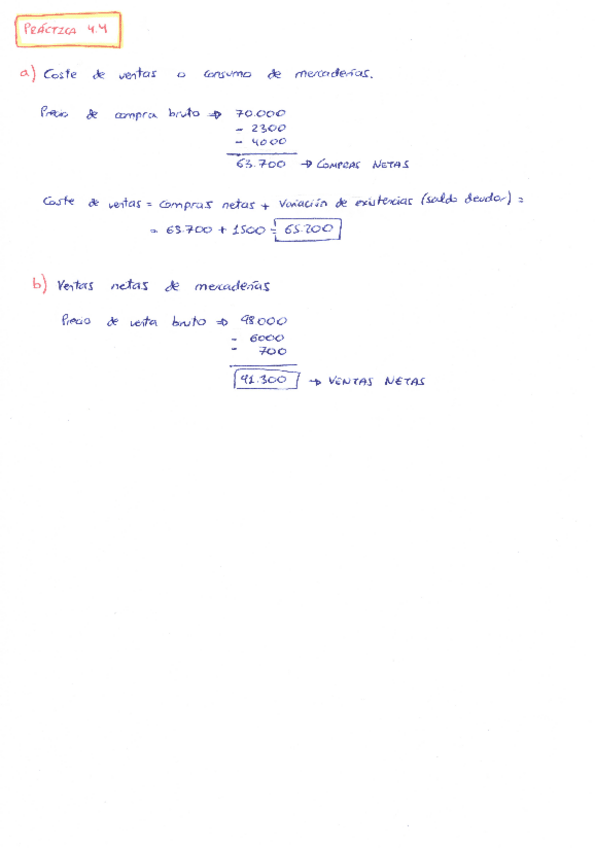 PRÁCTICA 4.4
a) Coste de ventas o consumo de mercaderías.
Precio de compra bruto ⇒ 70.000
- 2300
- 4000
63.700 → COMPRAS NETAS
Coste de ventas = compras netas + Variación de existencias (saldo deudor) =
= 63.700 + 1500 = 65.200
b) Ventas netas de mercaderías
Precio de venta bruto ⇒ 48000
- 6000
- 700
41.300 → VENTAS NETAS